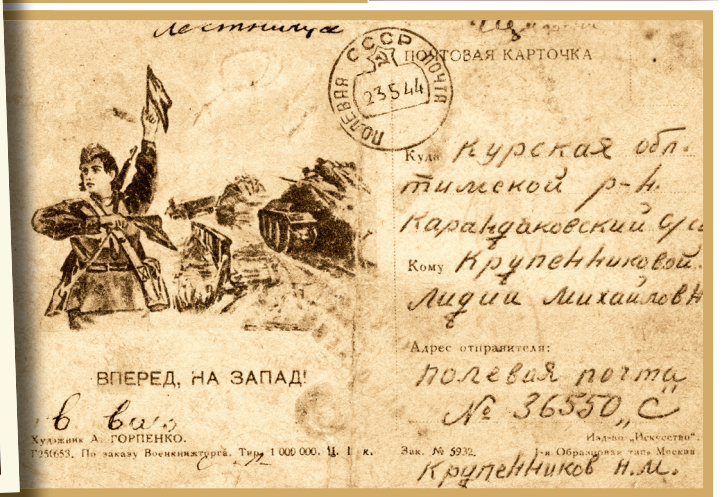 Лестница
ПОЧТОВАЯ КАРТОЧКА
СССР
ПОЛЕВАЯ ПОЧТА
23.5.44
Куда Курская обл.
тимской р-н.
Карандаковский с/с
Кому Крупенниковой
Лидии Михайловн
Адрес отправителя:
полевая почта
№ 36550 „С"
Крупенников Н.М.
ВПЕРЕД, НА ЗАПАД!
Художник А. ГОРПЕНКО.
Г256653. По заказу Военкнижторга. Тир. 1 000 000. Ц. к.
Зак. № 5932.
Изд-во „Искусство".
1-я Образцовая тип. Москва